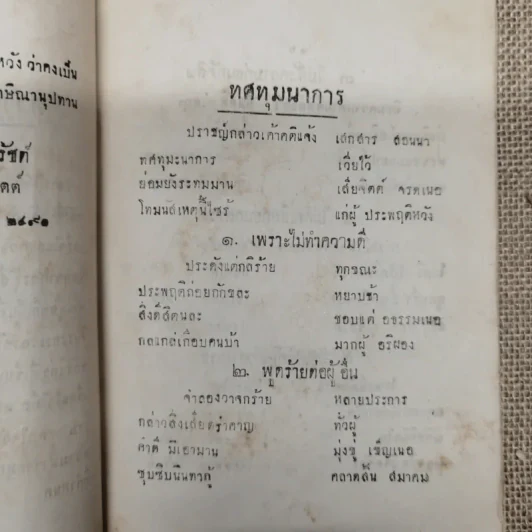 หวัง ว่าคงเป็น
ษิณานุปทาน
รัชต์
ตต์
๒๔๙๑
ทศทุมนาการ
ปราชญ์กล่าวเค้าคติแจ้ง เสกสาร สอนนา
ทศทุมะนาการ เวี่ยไว้
ย่อมยังระทมมาน เสียจิตต์ จรดเนอ
โทมนัสเหตุนี้ไซร้ แก่ผู้ ประพฤติหวัง
๑. เพราะไม่ทำความดี
ประดังแต่กลิร้าย ทุกขณะ
ประพฤติถ่อยกักขละ หยาบช้า
สิ่งดีสิตนละ ชอบแต่ อธรรมเนอ
กลเกล่เกือบคนบ้า มากผู้ อริผอง
๒. พูดร้ายต่อผู้อื่น
จำลองวาจกร้าย หลายประการ
กล่าวสิ่งเสียดรำคาญ ทั่วผู้
คำดี มิเอามาน มุ่งขู่ เข็ญเนอ
ซุบซิบนินทากู้ คลาดสิ้น สมาคม